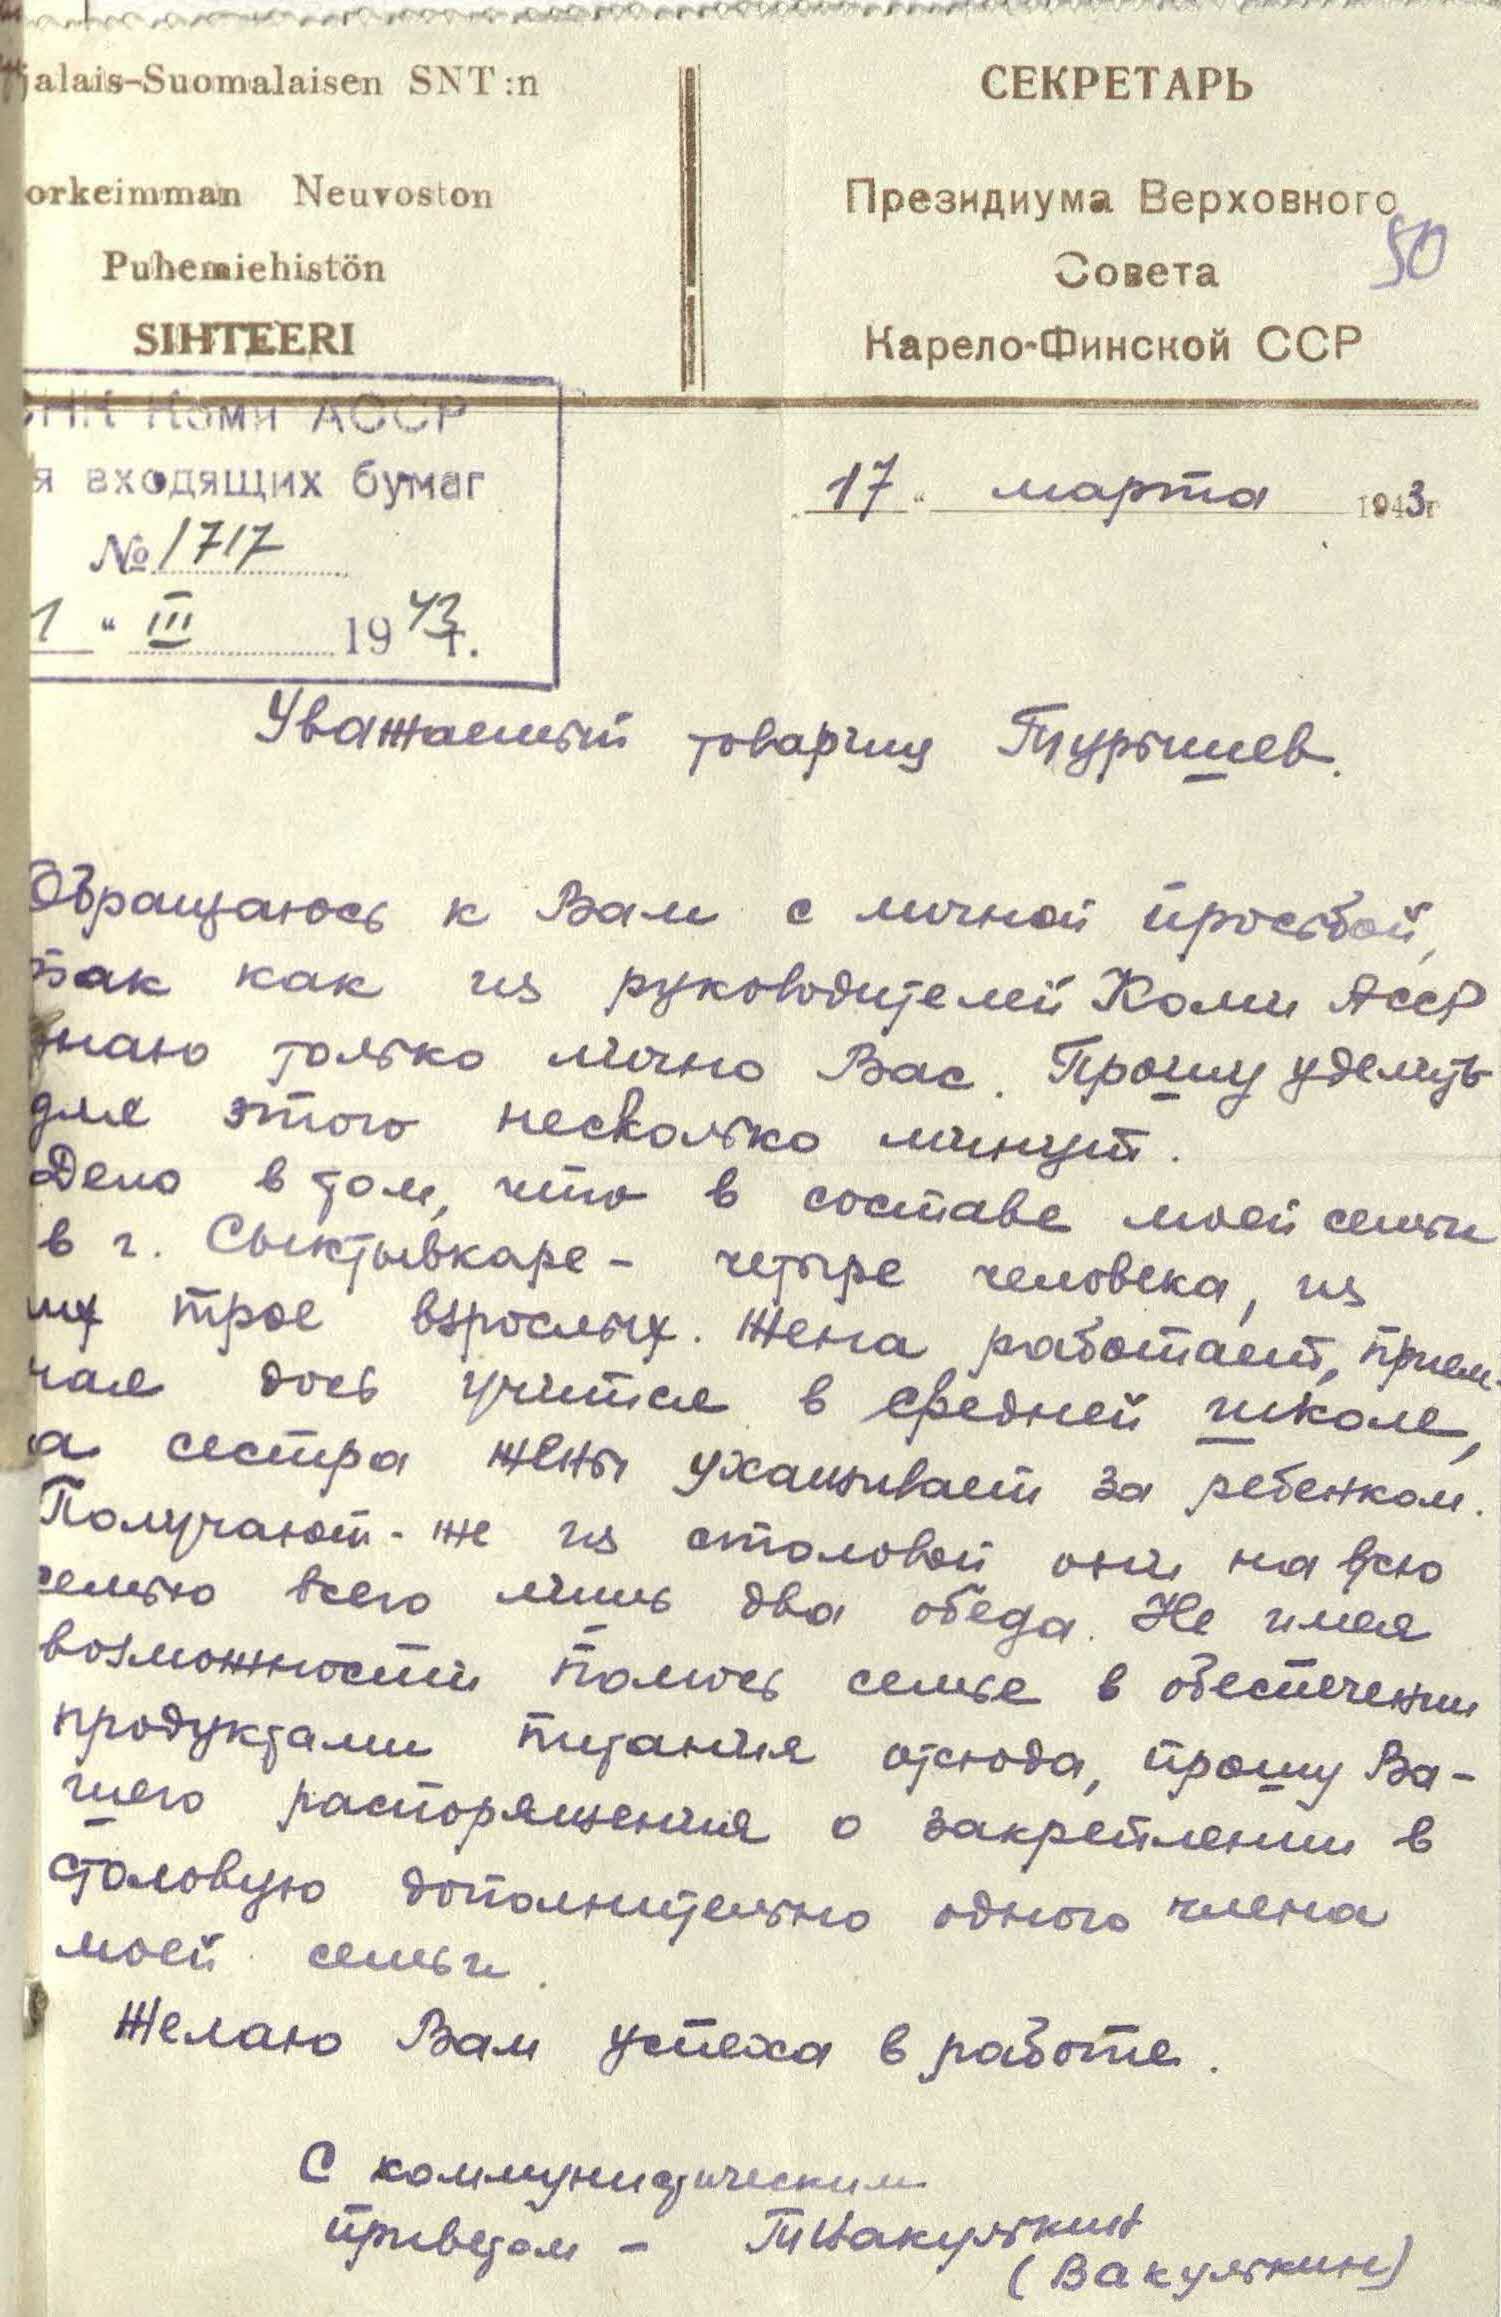 jalais-Suomalaisen SNT:n
orkeimman Neuvoston
Puhemiehistön
SIHTEERI
СЕКРЕТАРЬ
Президиума Верховного
Совета
Карело-Финской ССР
50
СНК Коми АССР
я входящих бумаг
№ 1717
1 " III 1943г.
17 " марта 1943г
Уважаемый товарищ Турышев.
Обращаюсь к Вам с личной просьбой,
так как из руководителей Коми АССР
знаю только лично Вас. Прошу уделить
для этого несколько минут.
Дело в том, что в составе моей семьи
в г. Сыктывкаре - четыре человека, из
них трое взрослых. Жена работает, прием-
ная дочь учится в средней школе,
а сестра жены ухаживает за ребенком.
Получают-же из столовой они на всю
семью всего лишь два обеда. Не имея
возможности помочь семье в обеспечении
продуктами питания отсюда, прошу Ва-
шего распоряжения о закреплении в
столовую дополнительно одного члена
моей семьи.
Желаю Вам успеха в работе.
С коммунистическим
приветом - ТВакулькин
(Вакулькин)